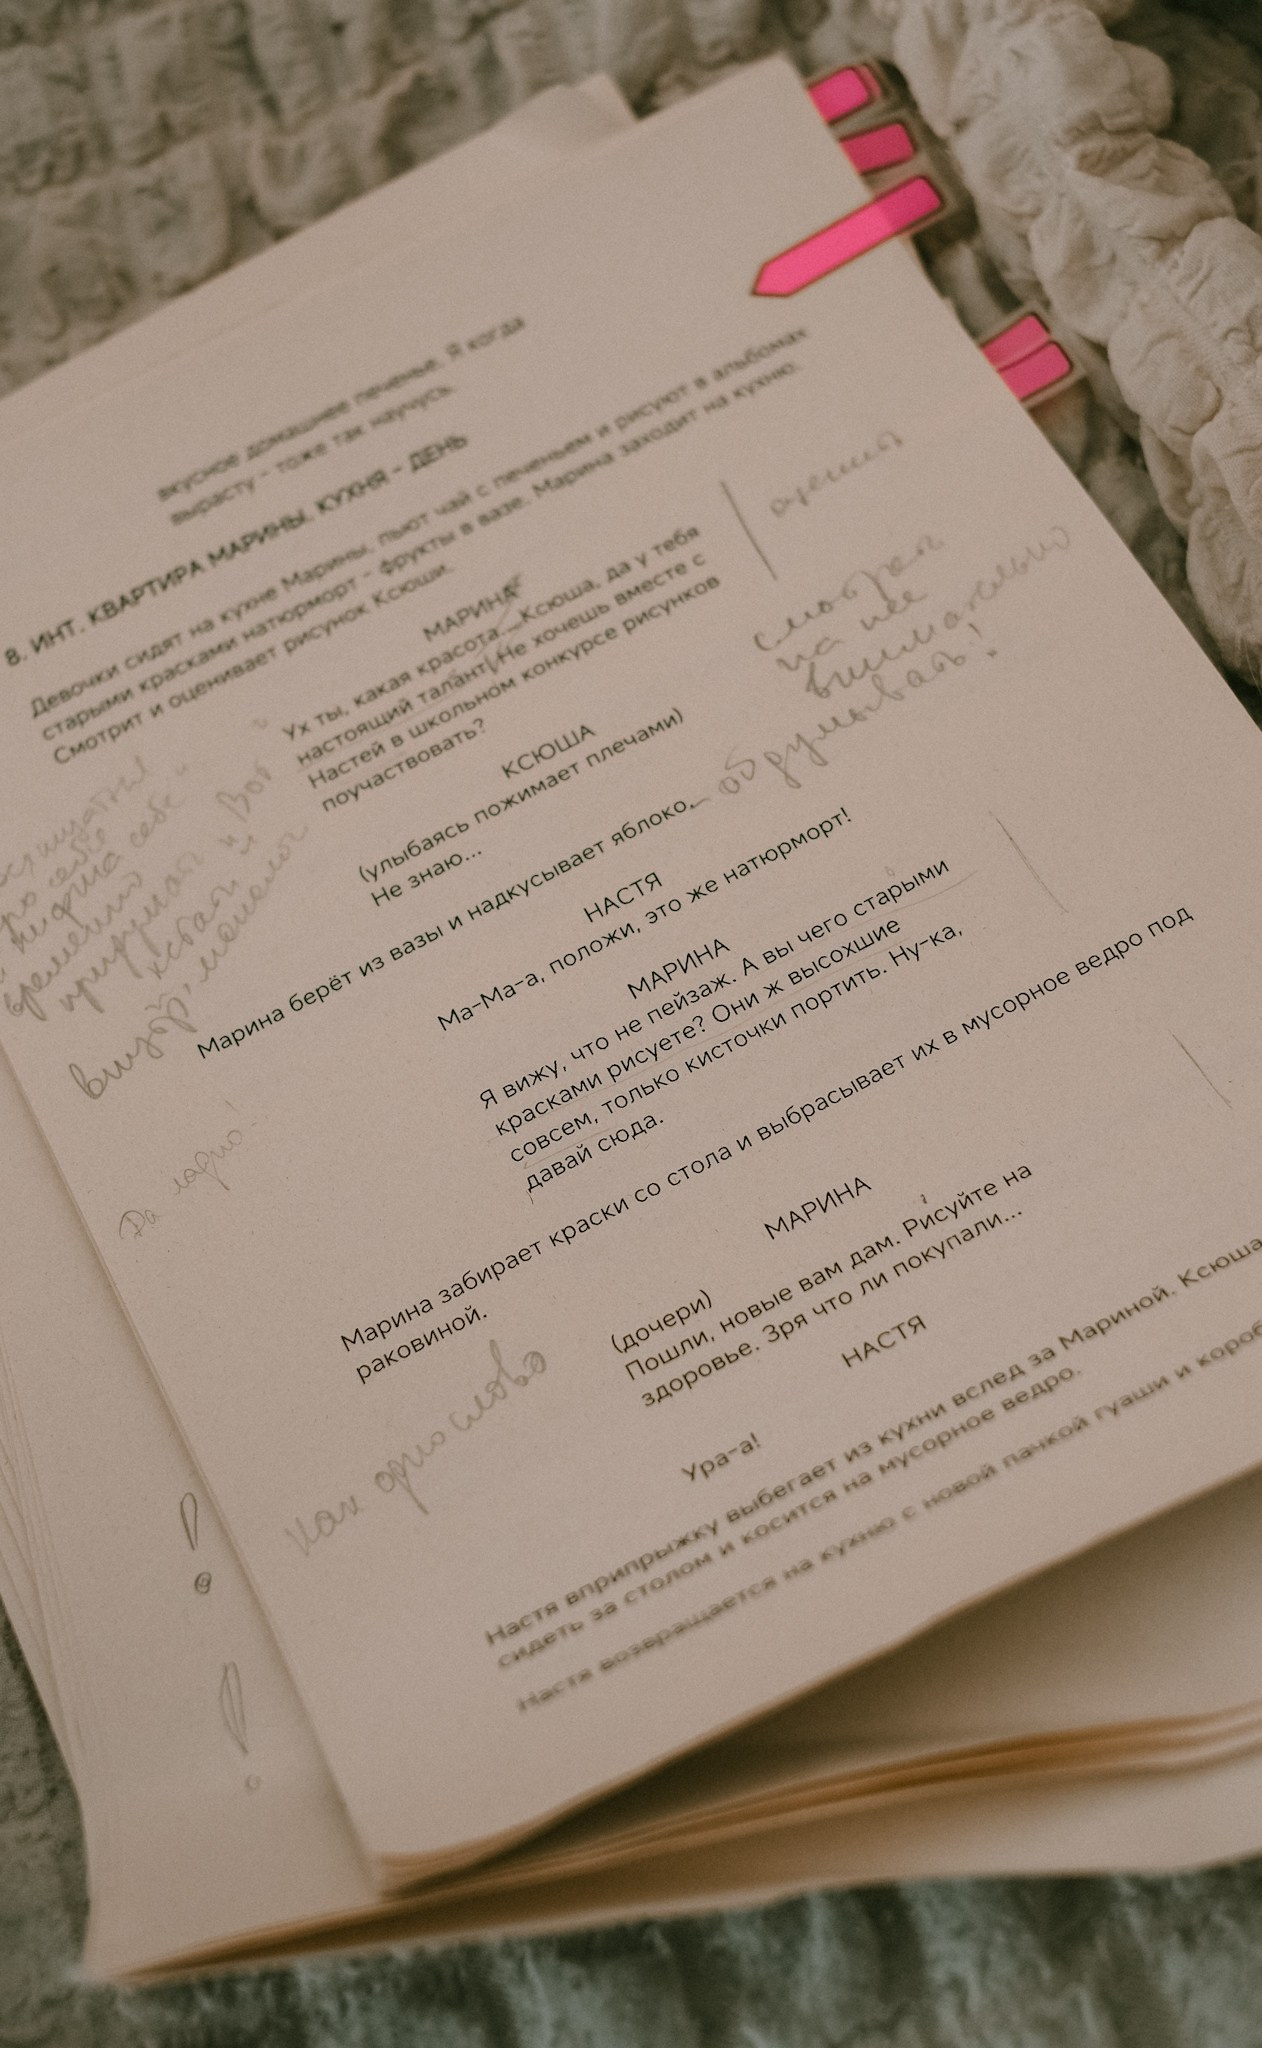 вкусное домашнее печенье. Я когда
вырасту - тоже так научусь.
8. ИНТ. КВАРТИРА МАРИНЫ. КУХНЯ - ДЕНЬ
Девочки сидят на кухне Марины, пьют чай с печеньем и рисуют в альбомах
старыми красками натюрморт - фрукты в вазе. Марина заходит на кухню.
Смотрит и оценивает рисунок Ксюши.
МАРИНА
Ух ты, какая красота... Ксюша, да у тебя
настоящий талант! Не хочешь вместе с
Настей в школьном конкурсе рисунков
поучаствовать?
смотрел
на нее
внимательно
КСЮША
(улыбаясь пожимает плечами)
Не знаю...
Марина берёт из вазы и надкусывает яблоко.
обдумывать!
НАСТЯ
Ма-Ма-а, положи, это же натюрморт!
МАРИНА
Я вижу, что не пейзаж. А вы чего старыми
красками рисуете? Они ж высохшие
совсем, только кисточки портить. Ну-ка,
давай сюда.
Да ладно!
Марина забирает краски со стола и выбрасывает их в мусорное ведро под
раковиной.
МАРИНА
(дочери)
Пошли, новые вам дам. Рисуйте на
здоровье. Зря что ли покупали...
Как одно слово
НАСТЯ
Ура-а!
Настя вприпрыжку выбегает из кухни вслед за Мариной. Ксюша
сидеть за столом и косится на мусорное ведро.
Настя возвращается на кухню с новой пачкой гуаши и короб